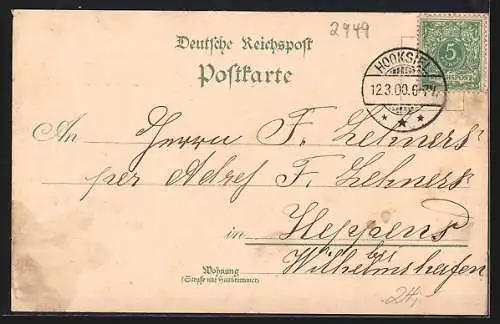 2449
Deutsche Reichspost
Postkarte
HOOKSIEL
12.3.00.6-7N.
5
REICHSPOST
An Herrn F. Lehners
per Adref F. Lehners
in Heppens
bei
Wilhelmshafen
Wohnung
(Straße und Hausnummer)
24,-